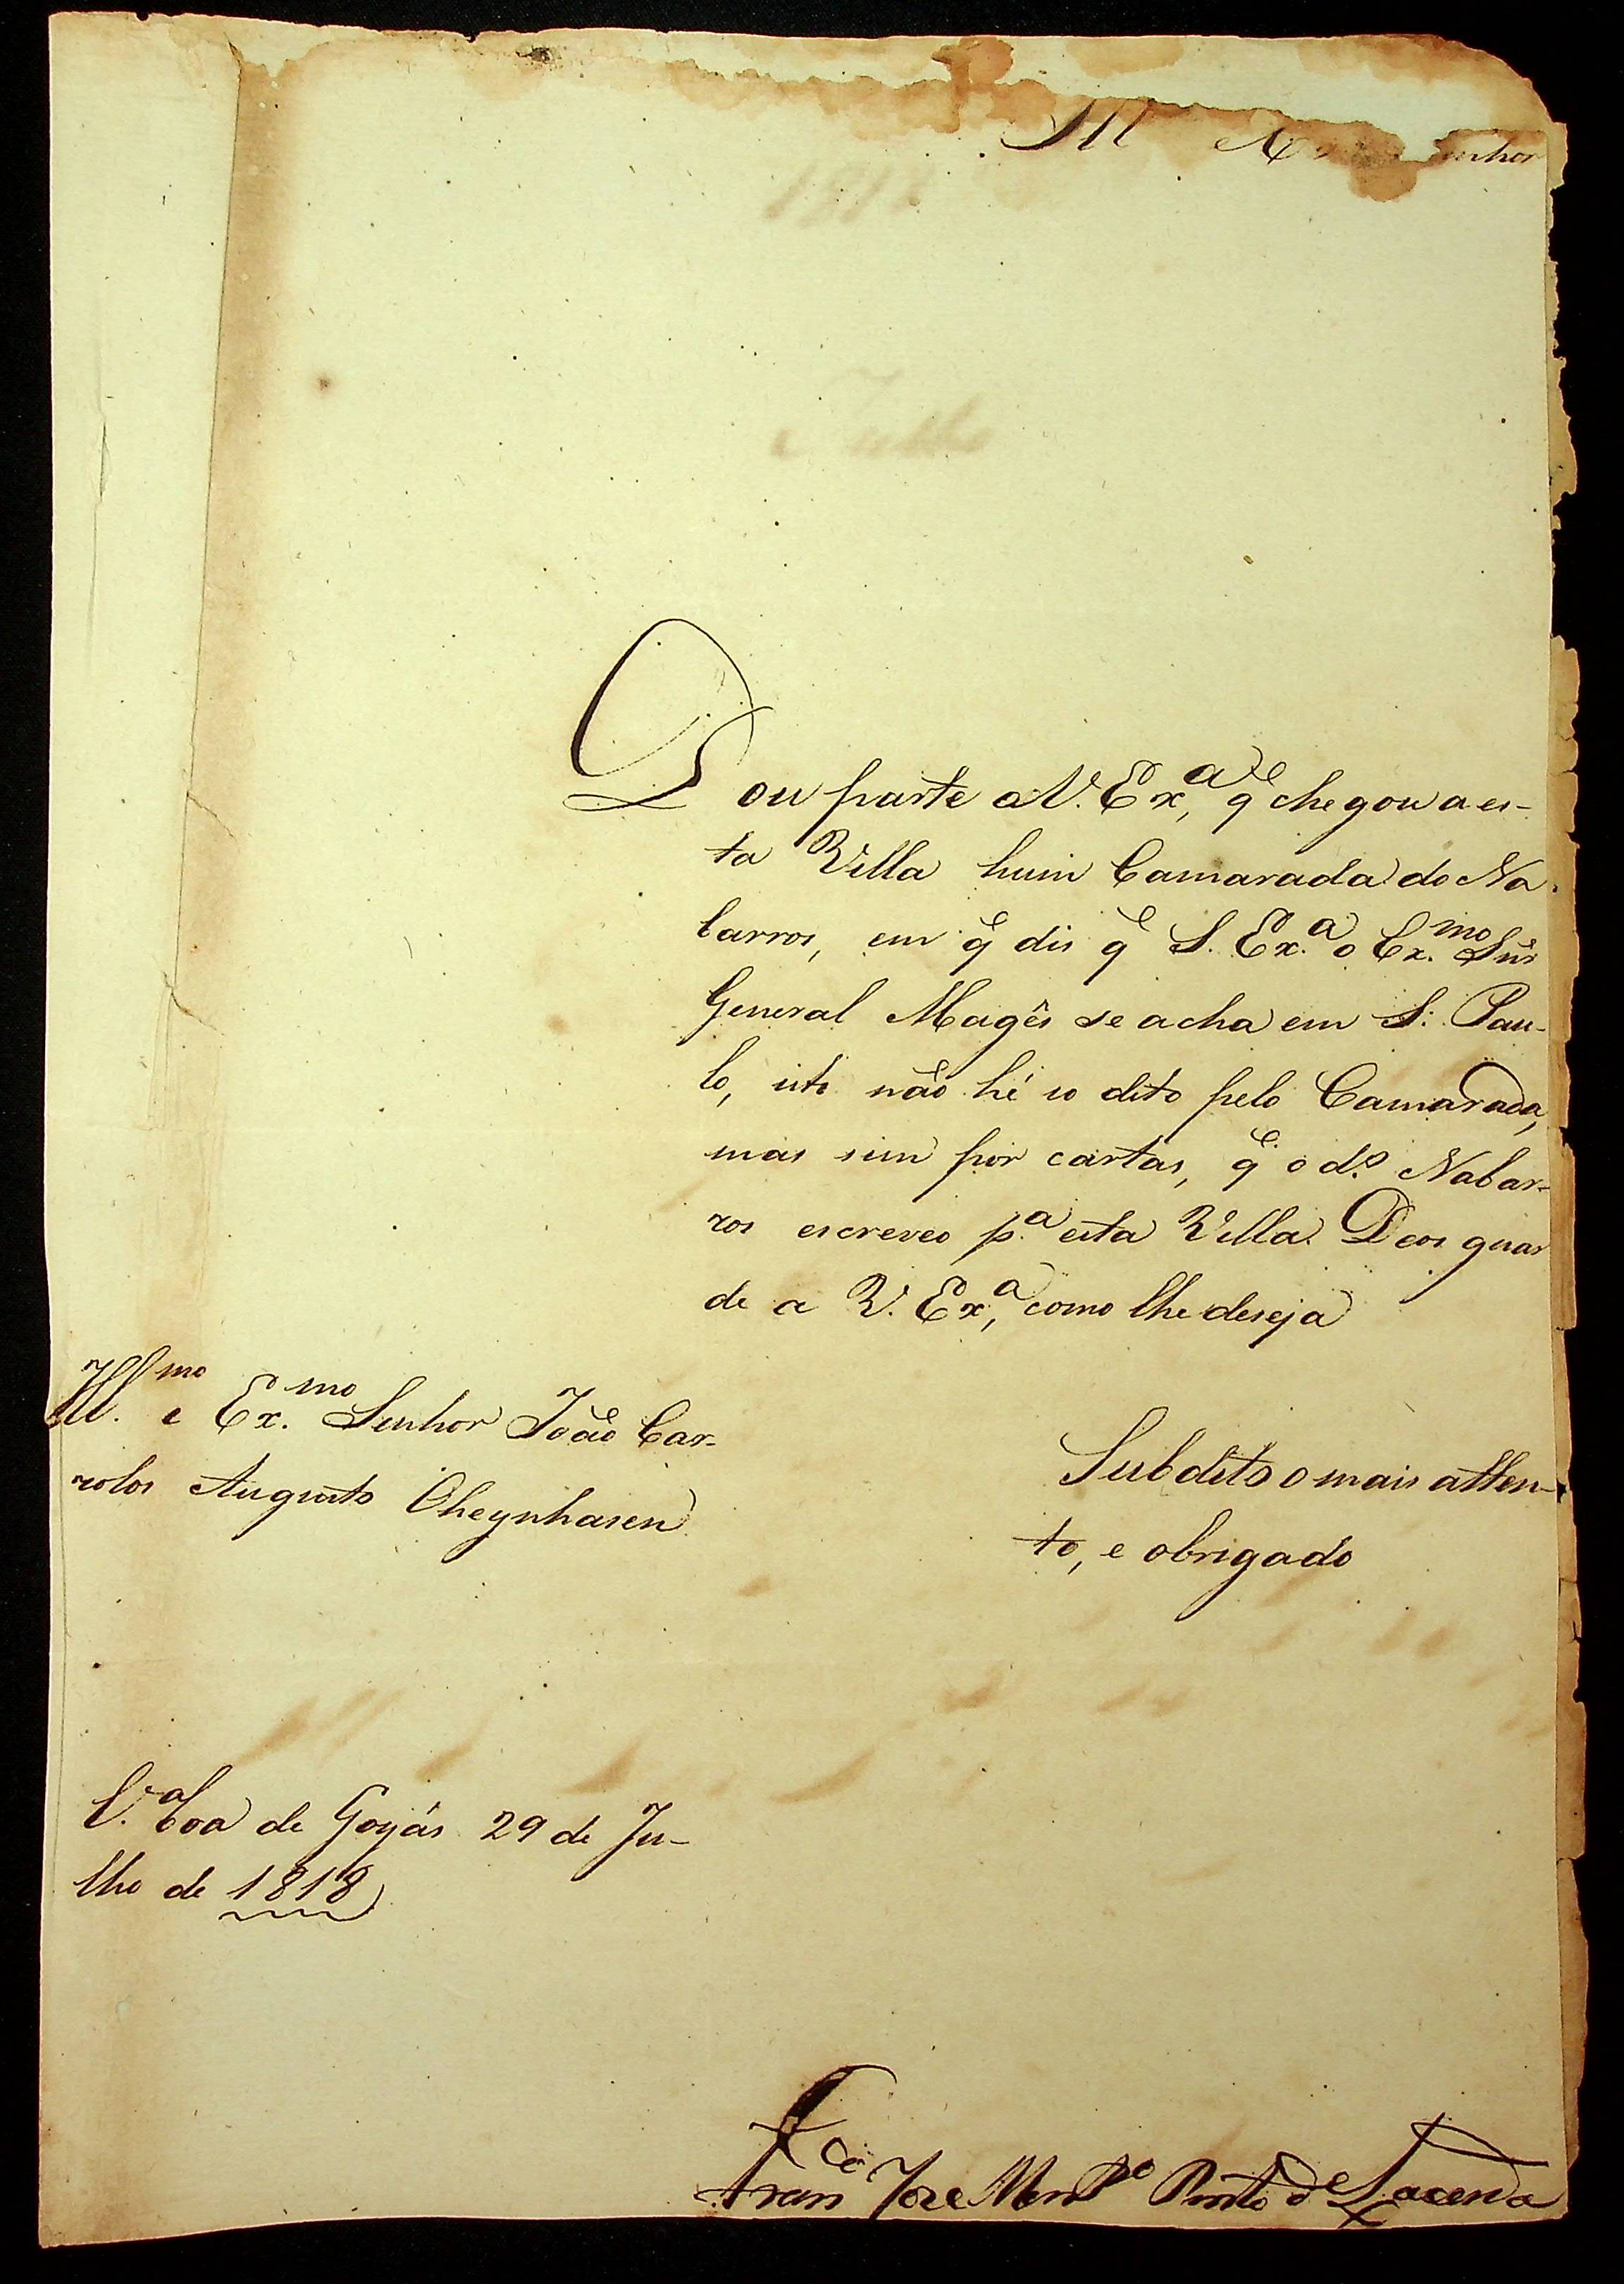 Ill Senhor
Dou parte a V. Exª, q̃ chegou a es-
ta Villa hum Camarada do Na-
barros, em q̃ dis q̃ S. Ex.ª o Ex.mo Snr̃
General Magês se acha em S. Pau-
lo, isto não hé só dito pelo Camarada,
mas sim por cartas, q̃ o d.º Nabar-
ros escreveo p.ª esta Villa. Deos guar
de a V. Exª, como lhe deseja
Ill.mo e Ex.mo Senhor João Car-
rolos Augusto Oheynhasen
Subdito o mais atten-
to, e obrigado
V.ª boa de Goyás 29 de Ju-
lho de 1818
Franco Joze Pinto de Lacerda